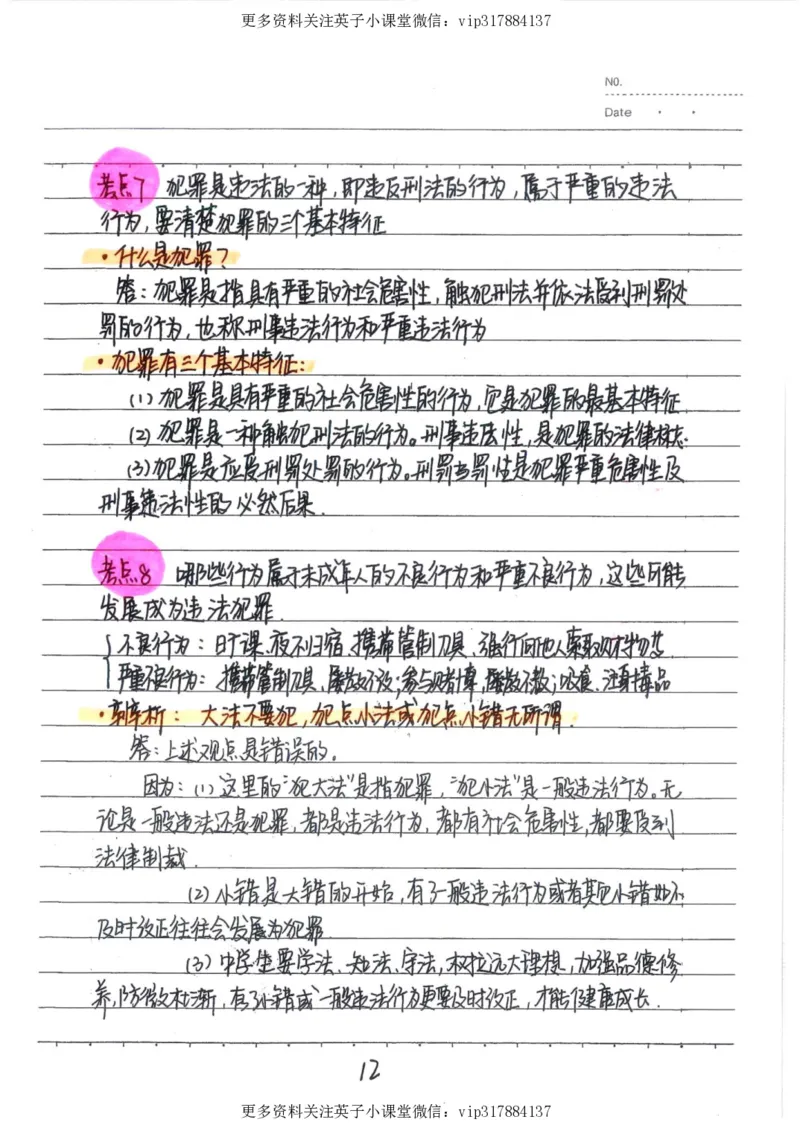 更多资料关注英子小课堂微信：vip317884137
NO.
Date
考点7 犯罪是违法的一种，即违反刑法的行为，属于严重的违法
行为，要清楚犯罪的三个基本特征
·什么是犯罪？
答：犯罪是指具有严重的社会危害性，触犯刑法并依法受到刑罚处
罚的行为，也称刑事违法行为和严重违法行为
·犯罪有三个基本特征：
(1)犯罪是具有严重的社会危害性的行为，它是犯罪的最基本特征
(2)犯罪是一种触犯刑法的行为。刑事违法性，是犯罪的法律标志
(3)犯罪是应受刑罚处罚的行为。刑罚当罚性是犯罪严重危害性及
刑事违法性的必然后果．
考点8 哪些行为属于未成年人的不良行为和严重不良行为，这些可能
发展成为违法犯罪．
不良行为：旷课、夜不归宿、携带管制刀具、强行向他人索取财物等
严重不良行为：携带管制刀具，屡教不改；参与赌博，屡教不改；吸食、注射毒品
·辨析：大法不要犯，犯点小法或犯点小错无所谓．
答：上述观点是错误的。
因为：(1)这里的“犯大法”是指犯罪，“犯小法”是一般违法行为。无
论是一般违法还是犯罪，都是违法行为，都有社会危害性，都要受到
法律制裁．
(2)小错是大错的开始，有了一般违法行为或者其他小错如不
及时改正往往会发展为犯罪
(3)中学生要学法、知法、守法，树立远大理想，加强品德修
养，防微杜渐，有了小错或一般违法行为更要及时改正，才能健康成长．
12
更多资料关注英子小课堂微信：vip317884137